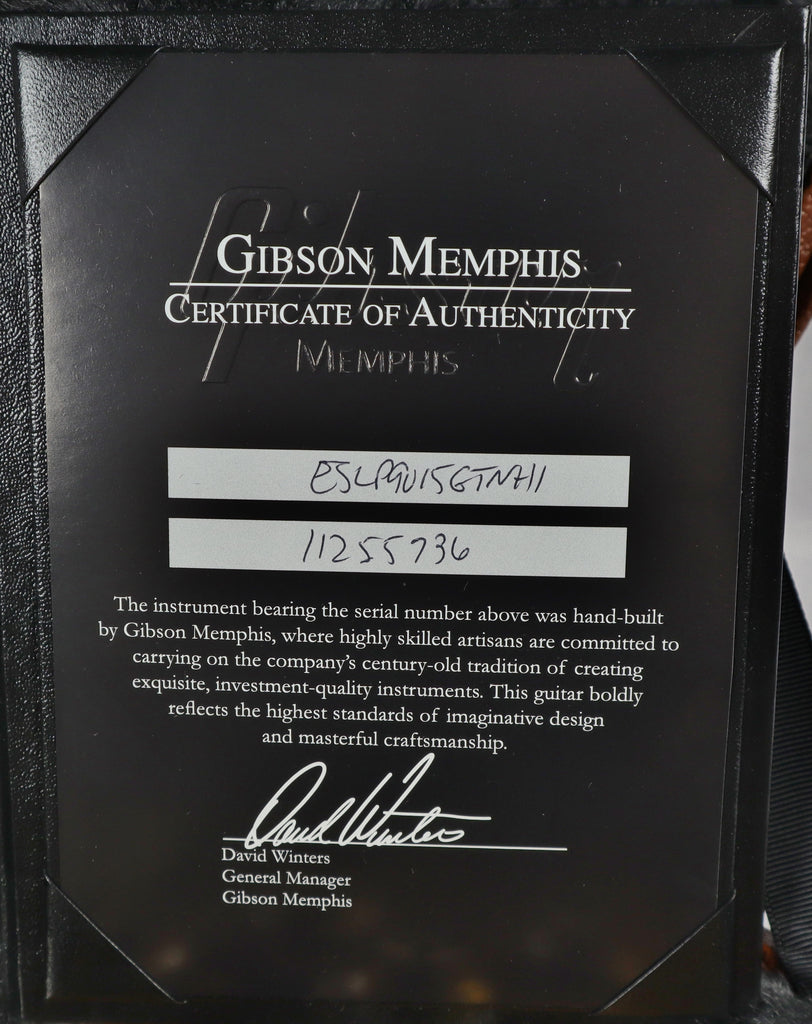 Gibson
GIBSON MEMPHIS
CERTIFICATE OF AUTHENTICITY
MEMPHIS
ESLP9U15GTNH1
11255736
The instrument bearing the serial number above was hand-built
by Gibson Memphis, where highly skilled artisans are committed to
carrying on the company's century-old tradition of creating
exquisite, investment-quality instruments. This guitar boldly
reflects the highest standards of imaginative design
and masterful craftsmanship.
David Winters
David Winters
General Manager
Gibson Memphis